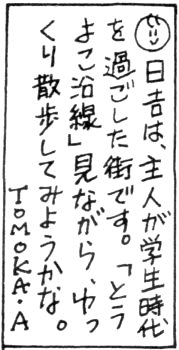 日吉は、主人が学生時代
を過ごした街です。「とう
よこ沿線」見ながら、ゆっ
くり散歩してみようかな。
TOMOKA・A